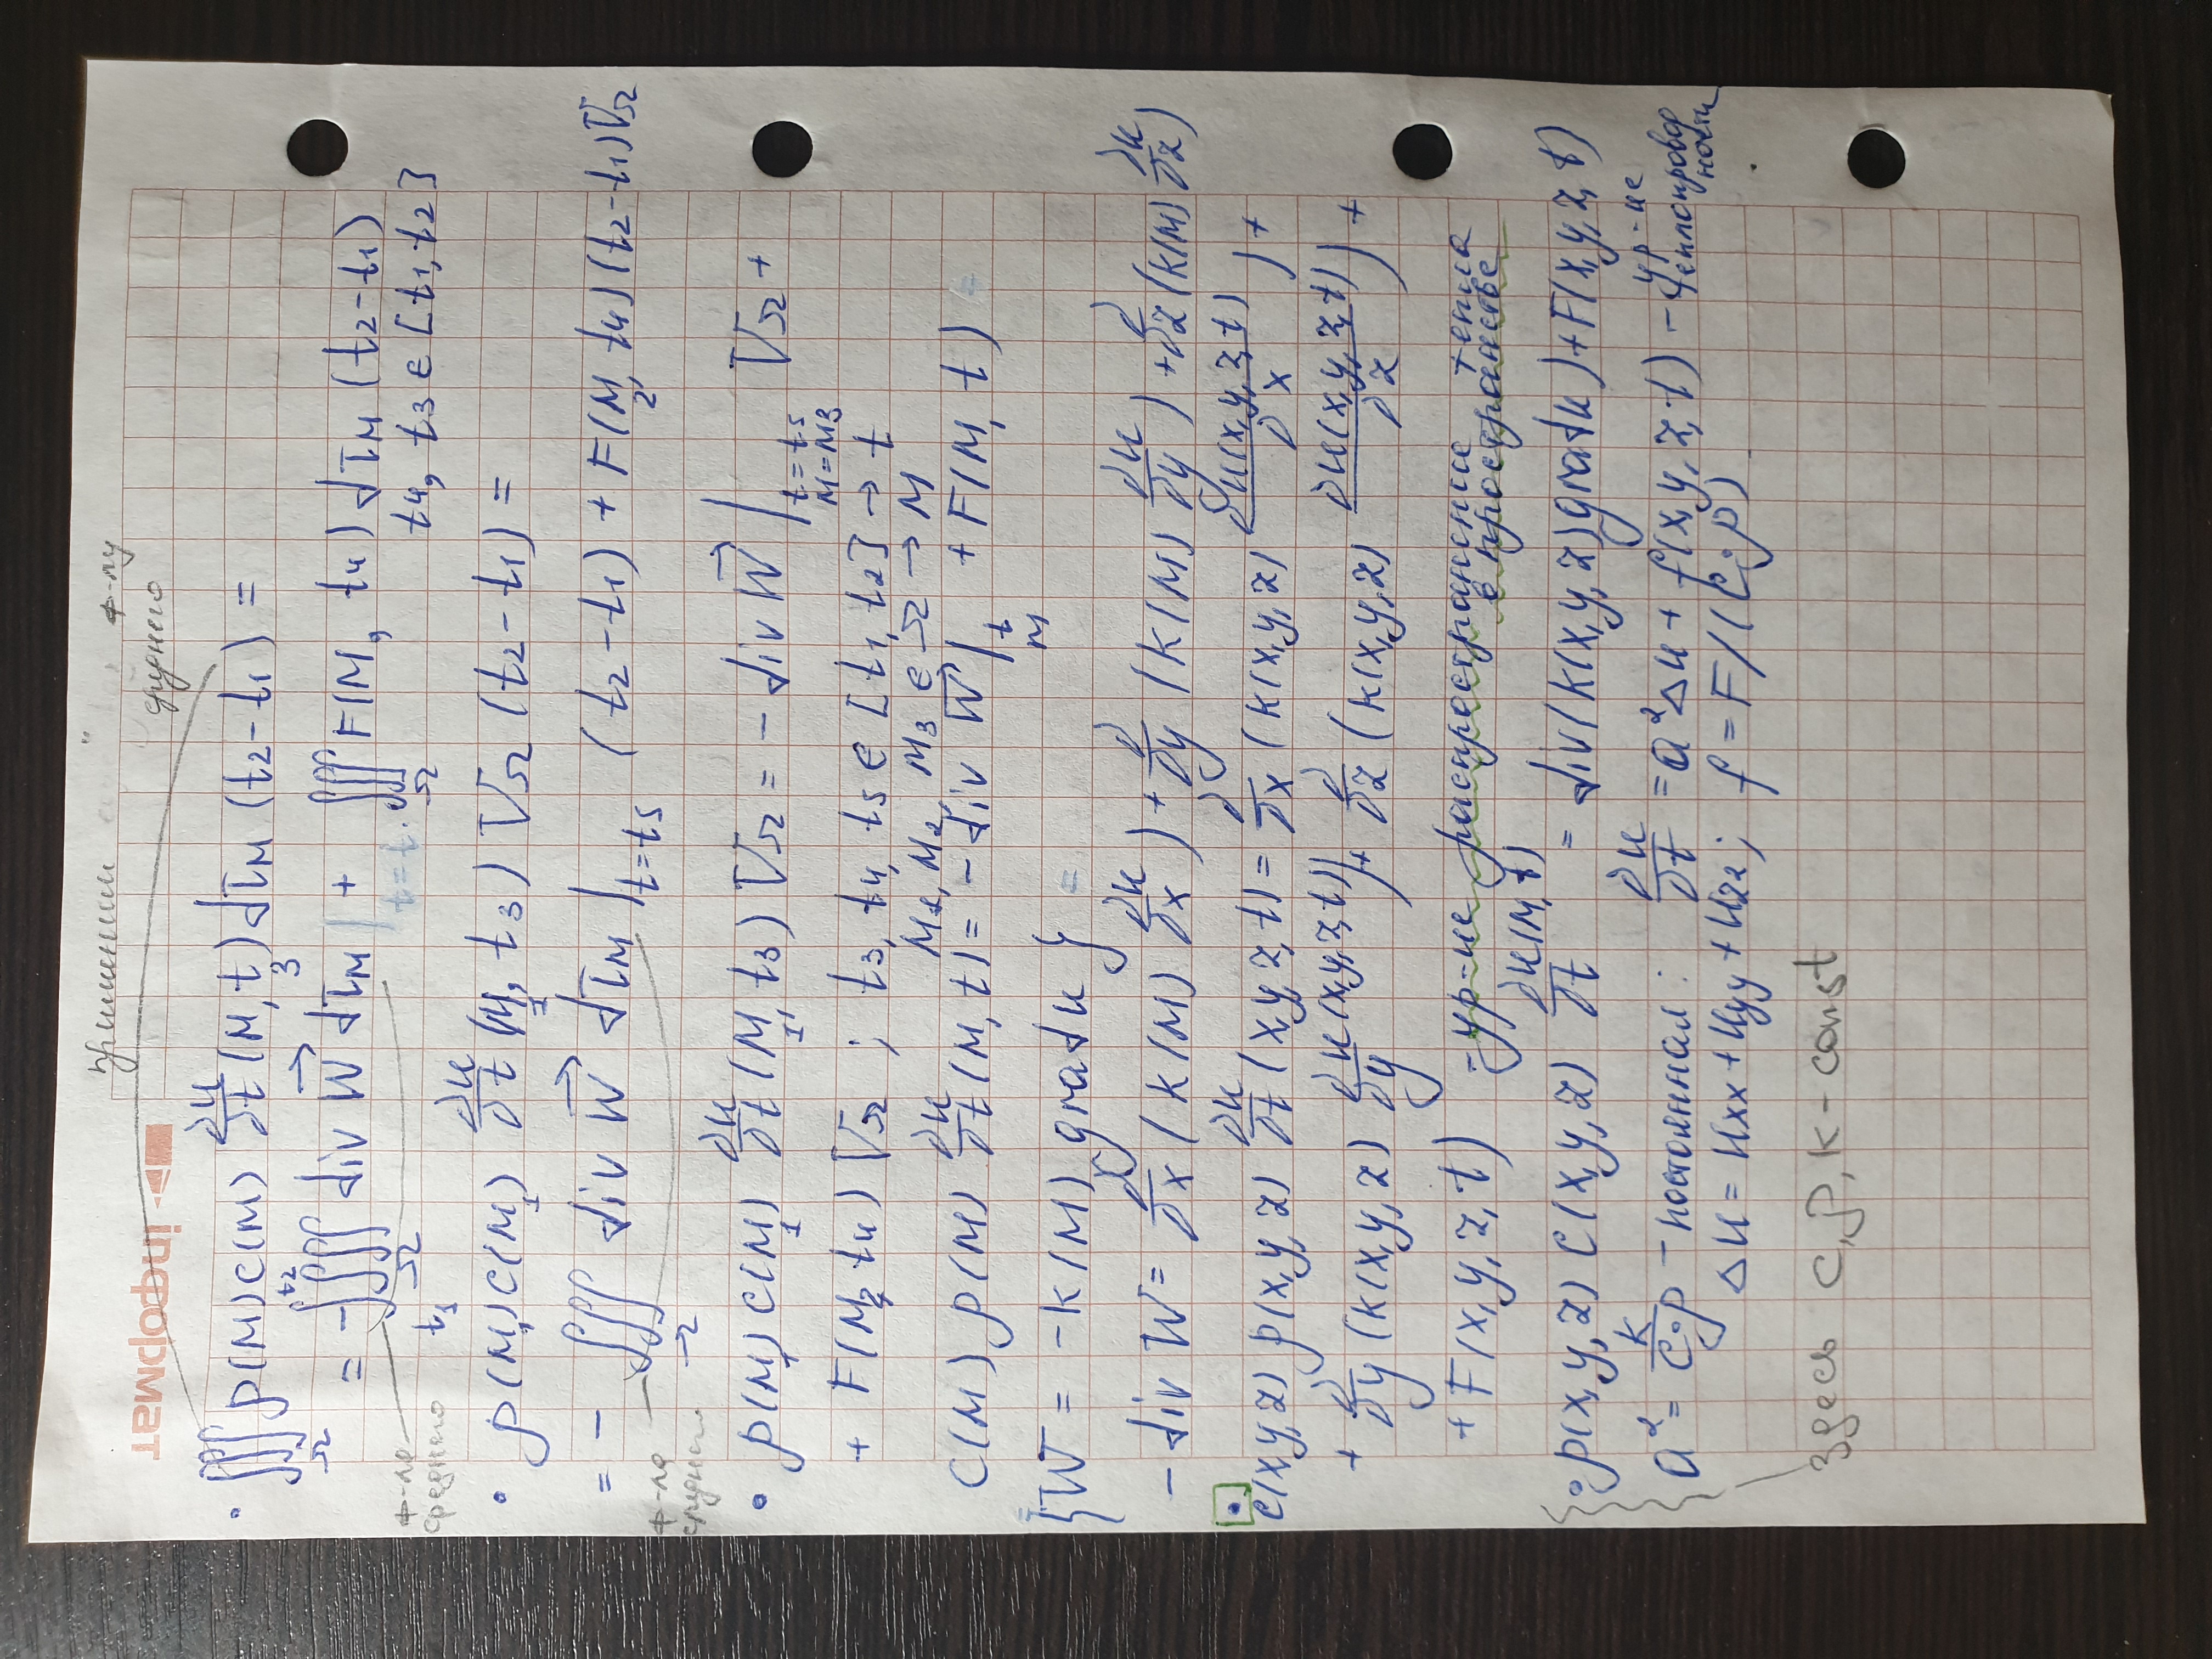 информат
применим
ф-лу
среднего
• ∭_Ω ρ(M)c(M) ∂u/∂t (M, t₃) dτ_M (t₂ - t₁) =
= - ∫_{t₁}^{t₂} ∭_Ω div W⃗ dτ_M | + ∭_Ω F(M, t₄) dτ_M (t₂ - t₁)
t₄, t₃ ∈ [t₁, t₂]
ф-ле
среднего
• ρ(M₁)c(M₁) ∂u/∂t (M₁, t₃) V_Ω (t₂ - t₁) =
= - ∭_Ω div W⃗ dτ_M |_{t=t₅} (t₂ - t₁) + F(M₂, t₄)(t₂ - t₁)V_Ω
ф-ле
среднего
• ρ(M₁) c(M₁) ∂u/∂t (M₁, t₃) V_Ω = - div W⃗ |_{t=t₅, M=M₃} V_Ω +
+ F(M₂, t₄) V_Ω ; t₃, t₄, t₅ ∈ [t₁, t₂] → t
M₁, M₂, M₃ ∈ Ω → M
c(M) ρ(M) ∂u/∂t (M, t) = - div W⃗ |_{t, M} + F(M, t)
{W⃗ = -k(M) grad u}
- div W = ∂/∂x (k(M) ∂u/∂x) + ∂/∂y (k(M) ∂u/∂y) + ∂/∂z (k(M) ∂u/∂z)
• c(x,y,z) ρ(x,y,z) ∂u/∂t (x,y,z,t) = ∂/∂x (k(x,y,z) ∂u(x,y,z,t)/∂x) +
+ ∂/∂y (k(x,y,z) ∂u(x,y,z,t)/∂y) + ∂/∂z (k(x,y,z) ∂u(x,y,z,t)/∂z) +
+ F(x,y,z,t) - ур-ие распространение тепла
в пространстве
• ρ(x,y,z) c(x,y,z) ∂u(M,t)/∂t = div(k(x,y,z) grad u) + F(x,y,z,t)
a² = k/(c·ρ) - постоянная : ∂u/∂t = a² Δu + f(x,y,z,t) - ур-ие
теплопровод
ности
Δu = u_xx + u_yy + u_zz ; f = F/(c·ρ)
здесь c, ρ, k - const